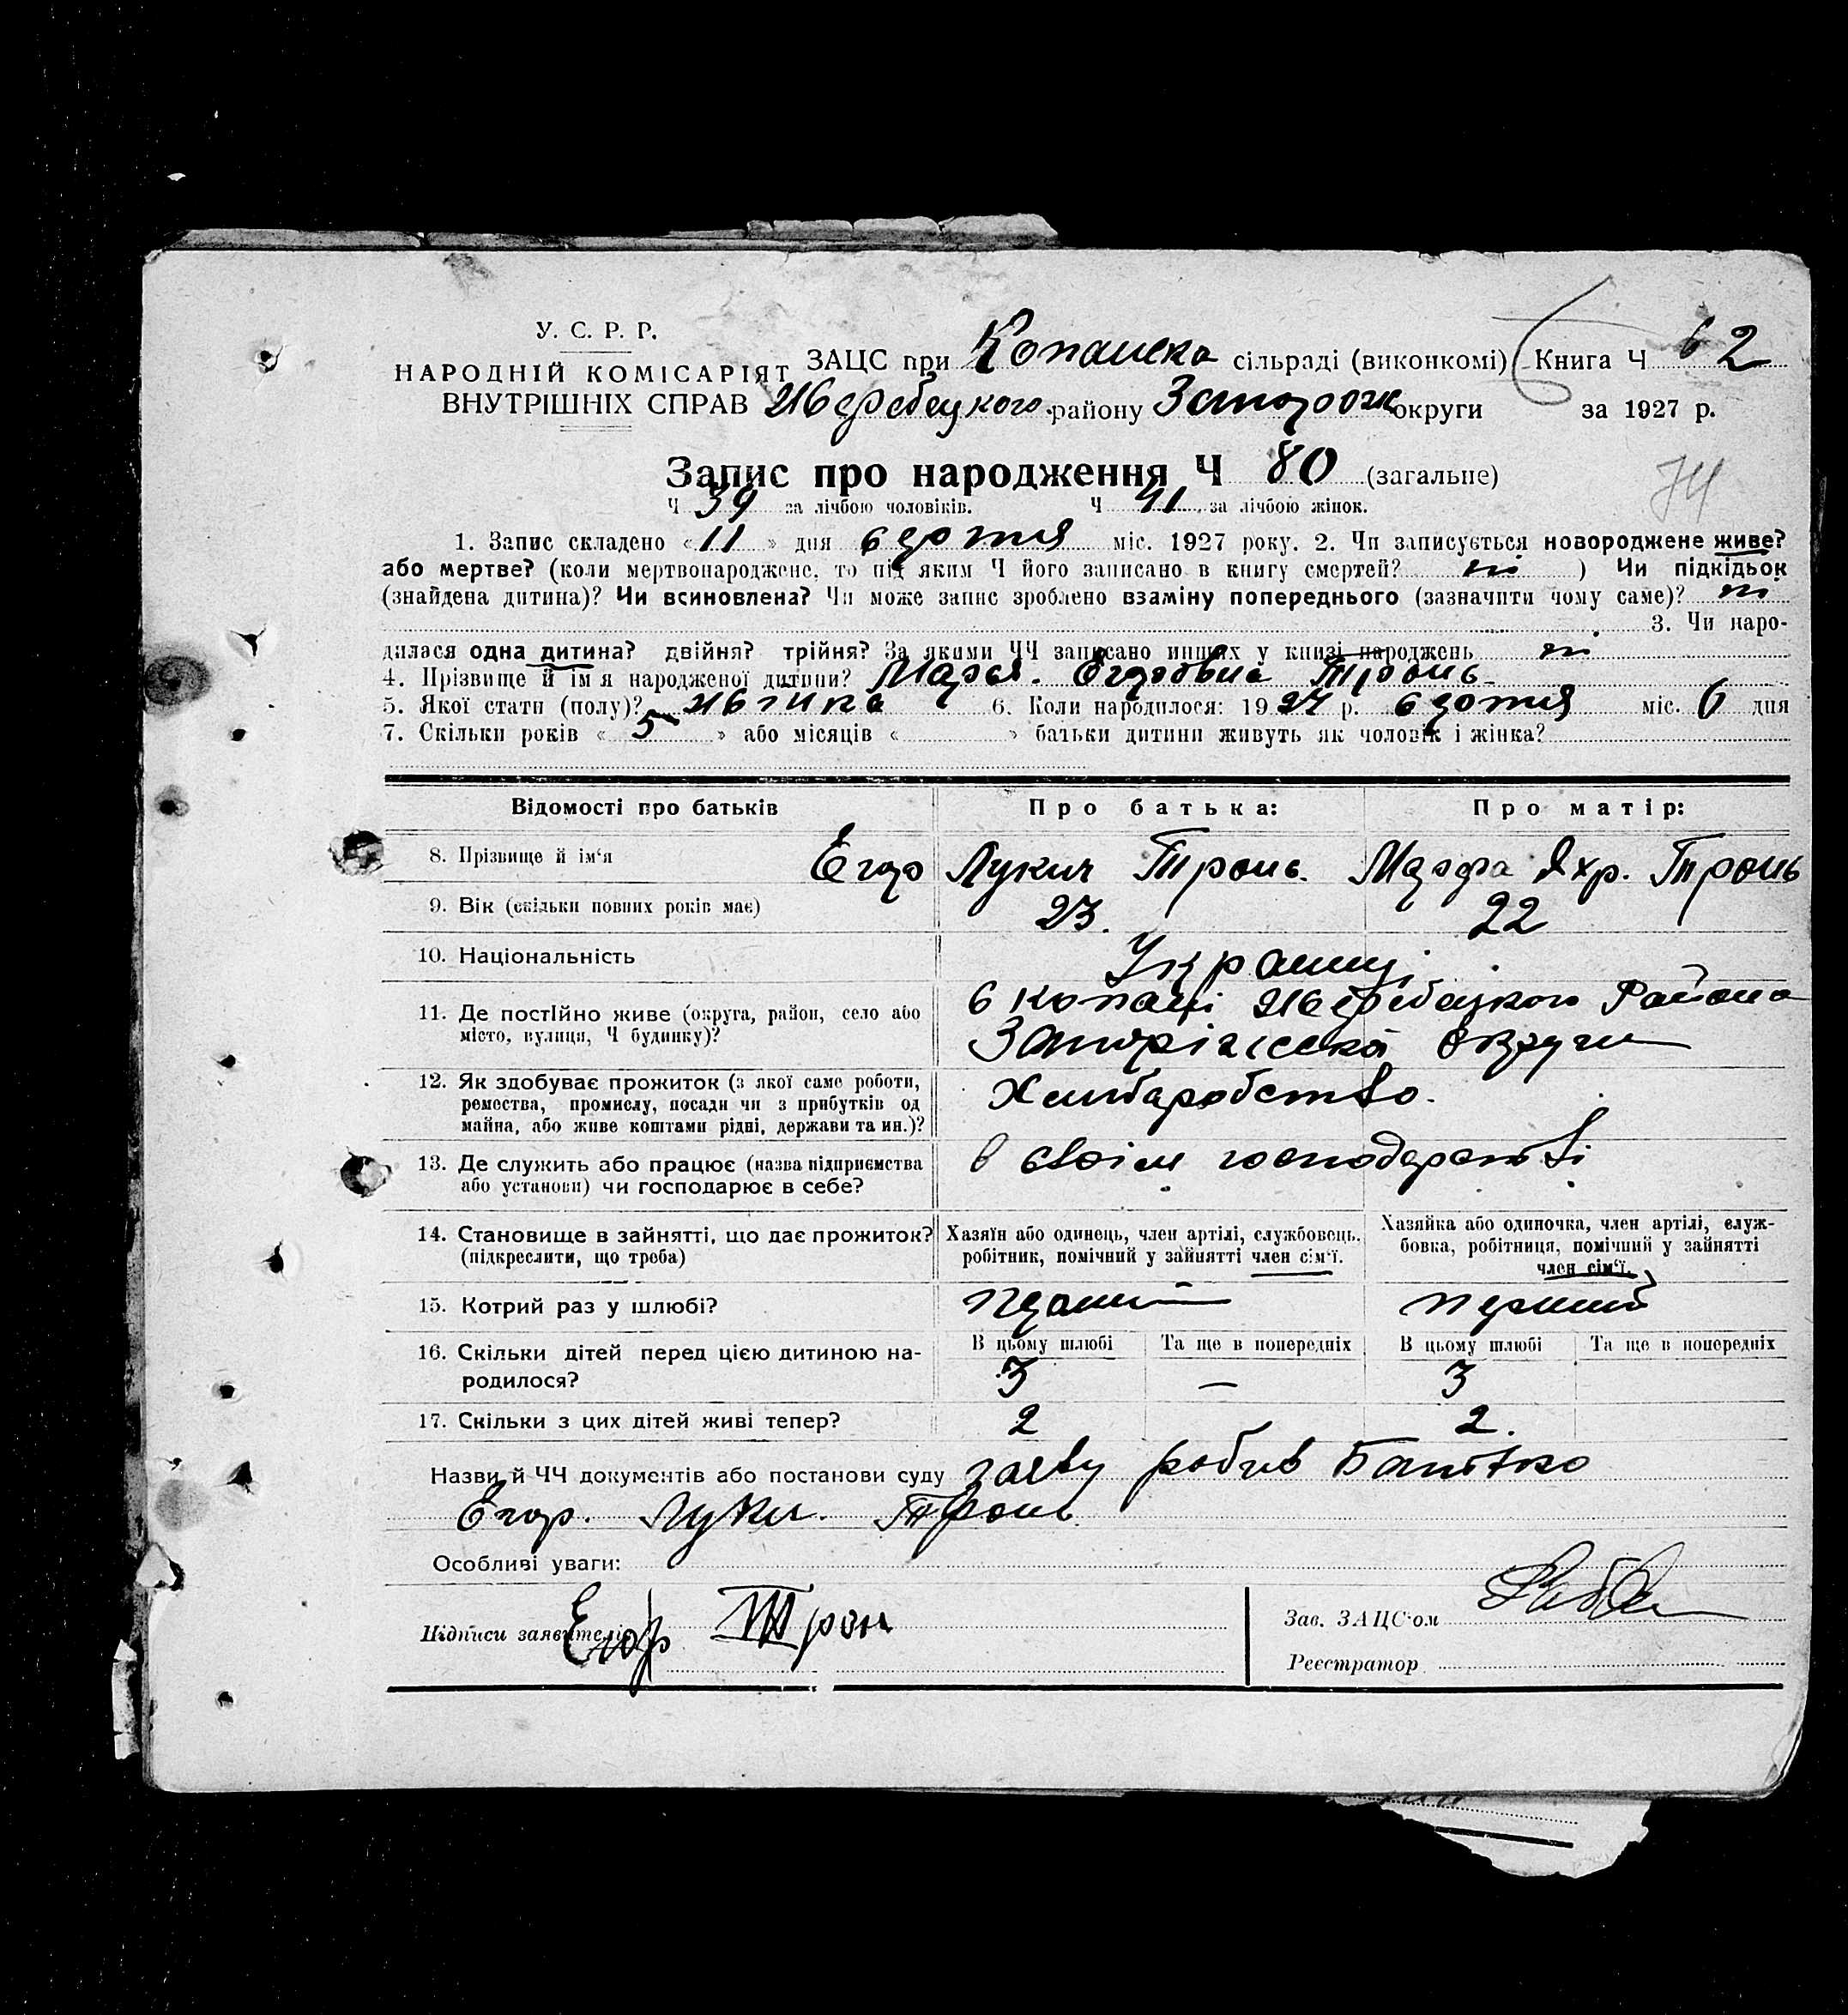 У. С. Р. Р.
НАРОДНІЙ КОМІСАРІЯТ
ВНУТРІШНІХ СПРАВ
ЗАЦС при Копанска сільраді (виконкомі) Книга Ч 62
Жеребецкого району Запорож округи за 1927 р.
Запис про народження Ч 80 (загальне)
Ч 39 за лічбою чоловіків. Ч 41 за лічбою жінок.
1. Запис складено « 11 » дня міс. 1927 року. 2. Чи записується новороджене живе?
або мертве? (коли мертвонароджене, то під яким Ч його записано в книгу смертей? ні ) Чи підкідьок
(знайдена дитина)? Чи всиновлена? Чи може запис зроблено взаміну попереднього (зазначити чому саме)? ні
3. Чи наро-
дилася одна дитина? двійня? трійня? За якими ЧЧ записано инших у книзі народжень ні
4. Прізвище й ім'я народженої дитини? Марья Егоровна Тронь
5. Якої стати (полу)? жіпка 6. Коли народилося: 1927 р. міс. 6 дня
7. Скільки років « 5 » або місяців « » батьки дитини живуть як чоловік і жінка?
Відомості про батьків Про батька: Про матір:
8. Прізвище й ім'я Егор Лукич Тронь. Марфа Яхр. Тронь
9. Вік (скільки повних років має) 23. 22
10. Національність Українці
11. Де постійно живе (округа, район, село або
місто, вулиця, Ч будинку)?
в копані Жеребецкого Района
Запоріжской Округи
12. Як здобуває прожиток (з якої саме роботи,
ремества, промислу, посади чи з прибутків од
майна, або живе коштами рідні, держави та ин.)?
Хлибаробство.
13. Де служить або працює (назва підприємства
або установи) чи господарює в себе?
в своім господарстві
14. Становище в зайнятті, що дає прожиток?
(підкреслити, що треба)
Хазяїн або одинець, член артілі, службовець,
робітник, помічний у зайнятті член сім'ї.
Хазяйка або одиночка, член артілі, служ-
бовка, робітниця, помічний у зайнятті
член сім'ї.
15. Котрий раз у шлюбі? перший
16. Скільки дітей перед цією дитиною на-
родилося?
В цьому шлюбі Та ще в попередніх В цьому шлюбі Та ще в попередніх
3 — 3
17. Скільки з цих дітей живі тепер? 2 2.
Назви й ЧЧ документів або постанови суду заяву робив Батько
Егор. Лукич. Тронь.
Особливі уваги:
Підписи заявителів Егор Трон
Зав. ЗАЦС'ом
Реєстратор